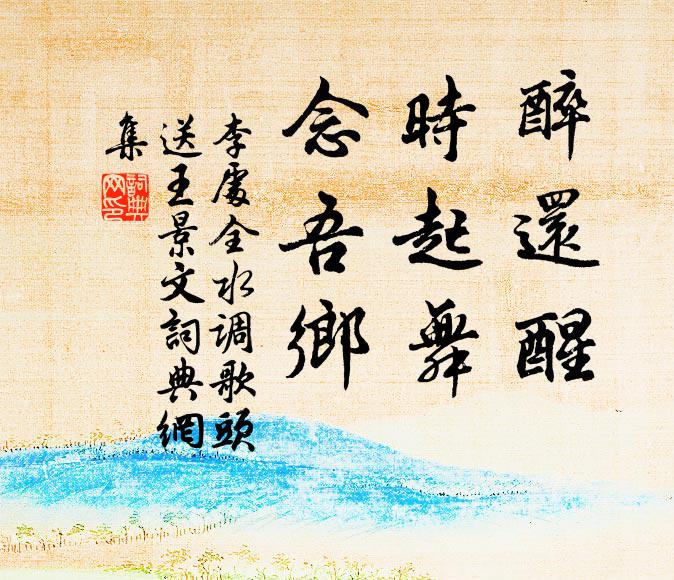 醉還醒
時起舞
念吾鄉
李處全水调歌頭
送王景文詞典網
集
詞典
网印